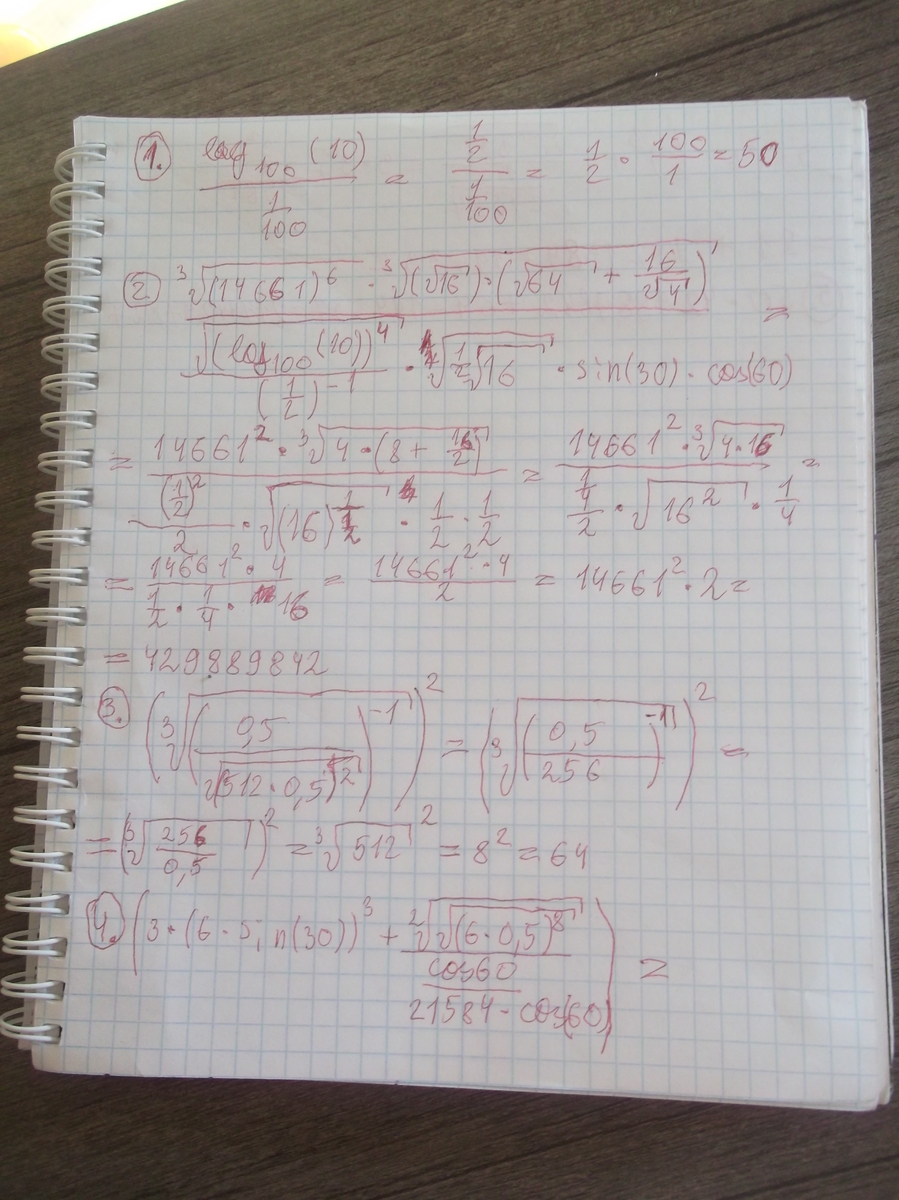 1. log₁₀₀(10) / (1/100) = (1/2) / (1/100) = 1/2 · 100/1 = 50
2 ∛((14661)⁶) · ∛((√16) · (√64 + 16/√4)) / (√((log₁₀₀(10))⁴) / (1/2)⁻¹ · ∜(½√16) · sin(30) · cos(60)) =
= 14661² · ∛(4 · (8 + 16/2)) / ((1/2)² / 2 · √((16)^(1/½)) · 1/2 · 1/2) = 14661² · ∛(4·16) / ((1/4)/2 · √(16²) · 1/4) =
= 14661² · 4 / (1/2 · 1/4 · 16) = 14661² · 4 / 2 = 14661² · 2 =
= 429889842
3. (∛((0,5 / √((512 · 0,5)²))⁻¹))² = (∛((0,5 / 256)⁻¹))² =
= (∛(256 / 0,5))² = ∛512² = 8² = 64
4. (3 · (6 · sin(30))³ + ²√(√((6 · 0,5)⁸)) / (cos60 / 21584 · cos(60))) =